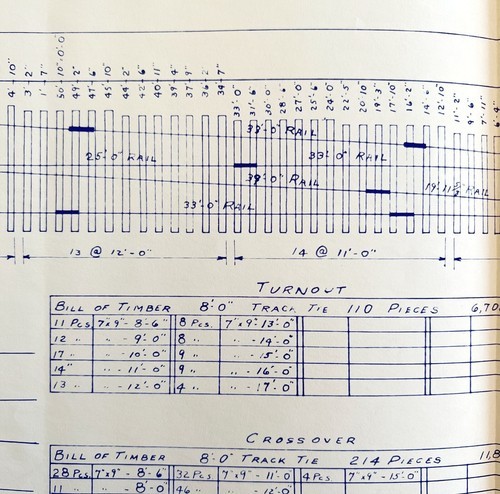 4'-10"
3'-2"
1'-7"
50'-10"=0'-0"
49'-2"
47'-6"
45'-10"
44'-2"
42'-6"
40'-11"
39'-4"
37'-9"
36'-2"
34'-7"
33'-0"
31'-6"
30'-0"
28'-6"
27'-0"
25'-6"
24'-0"
22'-5"
20'-10"
19'-3"
17'-10"
16'-2"
14'-6"
12'-10"
11'-2"
9'-6"
7'-11"
6'-4"
33'-0" RAIL
25'-0" RAIL 33'-0" RAIL
39'-0" RAIL
33'-0" RAIL
13 @ 12'-0" 14 @ 11'-0"
TURNOUT
BILL OF TIMBER 8'-0" TRACK TIE 110 PIECES 6,70
11 Pcs. 7"x9"-8'-6" 8 Pcs. 7"x9"-13'-0"
12 " " - 9'-0" 8 " - 14'-0"
17 " " - 10'-0" 9 " " - 15'-0"
14 " " - 11'-0" 9 " " - 16'-0"
13 " " - 12'-0" 4 " " - 17'-0"
CROSSOVER
BILL OF TIMBER 8'-0" TRACK TIE 214 PIECES 11,8
28 Pcs 7"x9"-8'-6" 32 Pcs 7"x9"-11'-0 4 Pcs 7"x9"-15'-0"
11 " " - 8'-0" 46 " - 12'-0"